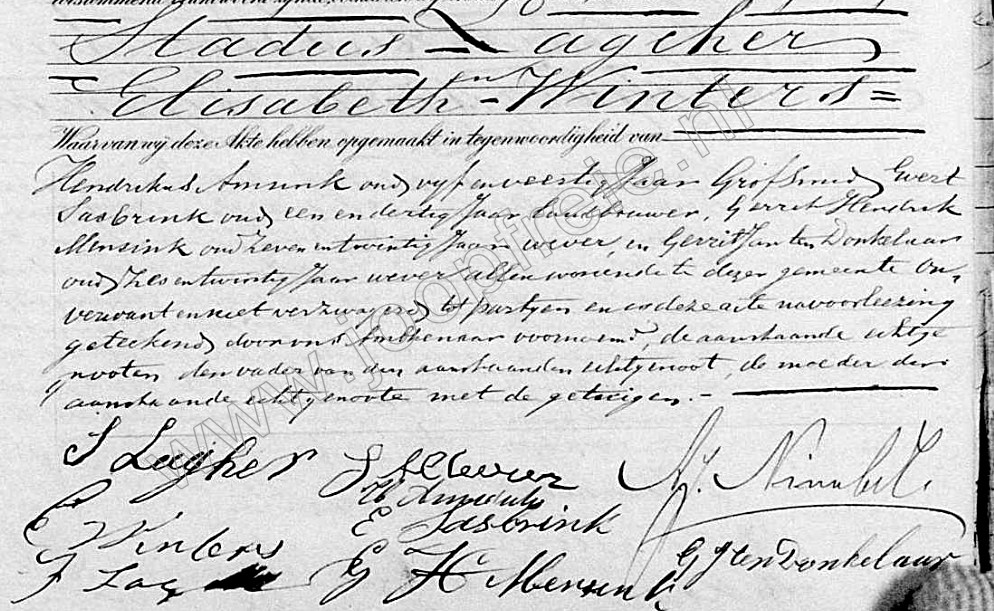 Stadius Lagcher
en
Elisabeth Winters
Waarvan wij deze Akte hebben opgemaakt in tegenwoordigheid van
Hendrikus Amsink oud vyf en veertig Jaar Grofsmid, Evert
Sasbrink oud een en dertig Jaar landbouwer, Gerrit Hendrik
Mensink oud zeven en twintig Jaar wever, en Gerrit Jan ten Donkelaar
oud zes en twintig Jaar wever allen wonende te dezer gemeente on-
verwant en niet verzwagerd tot partyen en is deze acte na voorlezing
geteekend door ons Ambtenaar voornoemd, de aanstaande echtge
nooten den vader van den aanstaanden echtgenoot, de moeder der
aanstaande echtgenoote met de getuigen.
S Lagher
E Winters
E Sasbrink
G H Mensink
G J ten Donkelaar
www.joopfreje.nl